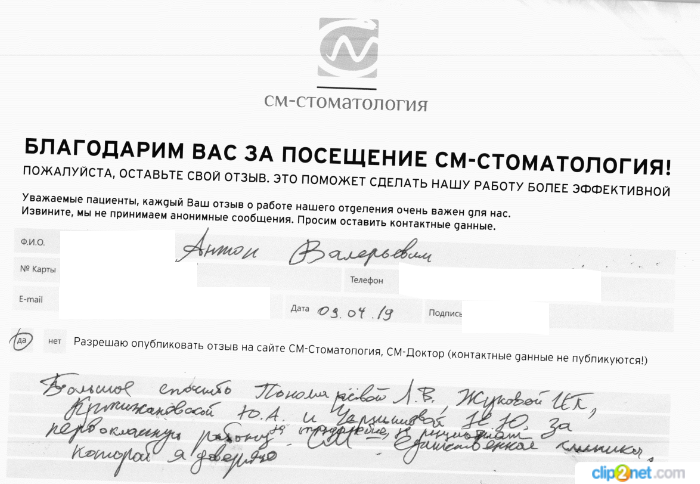 СМ-СТОМАТОЛОГИЯ
БЛАГОДАРИМ ВАС ЗА ПОСЕЩЕНИЕ СМ-СТОМАТОЛОГИЯ!
ПОЖАЛУЙСТА, ОСТАВЬТЕ СВОЙ ОТЗЫВ. ЭТО ПОМОЖЕТ СДЕЛАТЬ НАШУ РАБОТУ БОЛЕЕ ЭФФЕКТИВНОЙ
Уважаемые пациенты, каждый Ваш отзыв о работе нашего отделения очень важен для нас.
Извините, мы не принимаем анонимные сообщения. Просим оставить контактные данные.
Ф.И.О. Антон Валерьевич
№ Карты Телефон
E-mail Дата 03.04.19 Подпись
да нет Разрешаю опубликовать отзыв на сайте СМ-Стоматология, СМ-Доктор (контактные данные не публикуются!)
Большое спасибо Пономарёвой Л.В, Жуковой
Кржижановской Ю.А. и за
первоклассную работу, за и
СМ - Единственная клиника,
которой я доверяю
clip2net.com